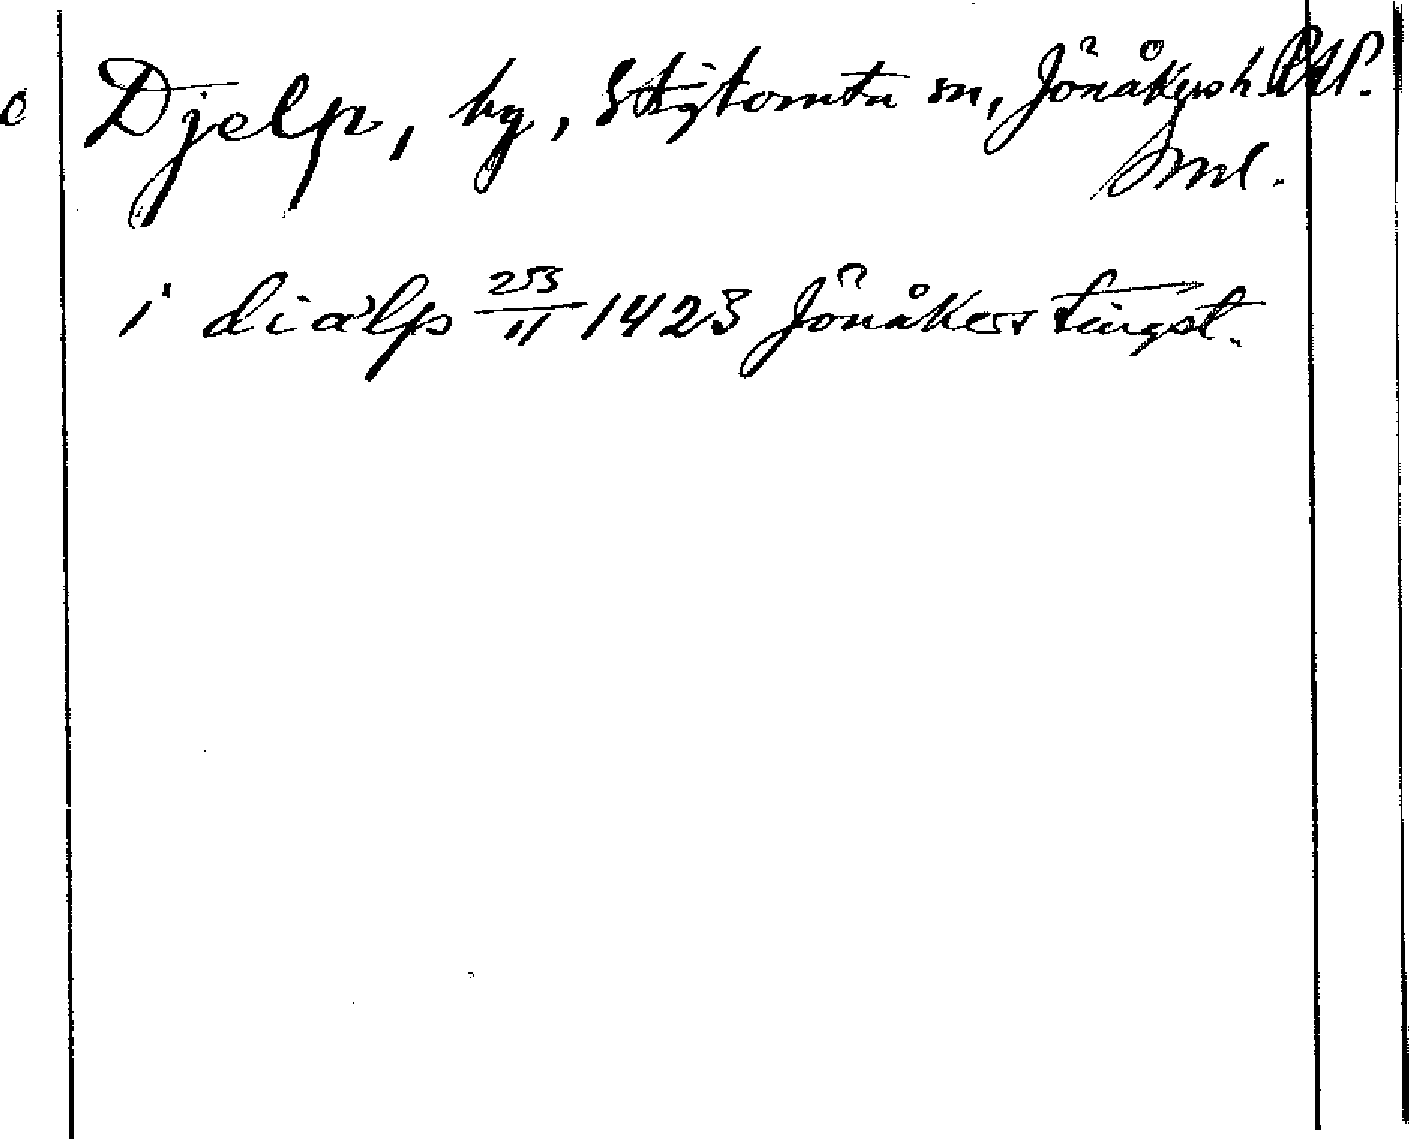 Djelp, hg, Stigtomta sn, Jönåkers h. RAP.
Sml.
i dialp 25/11 1423 Jönåkers tingst.